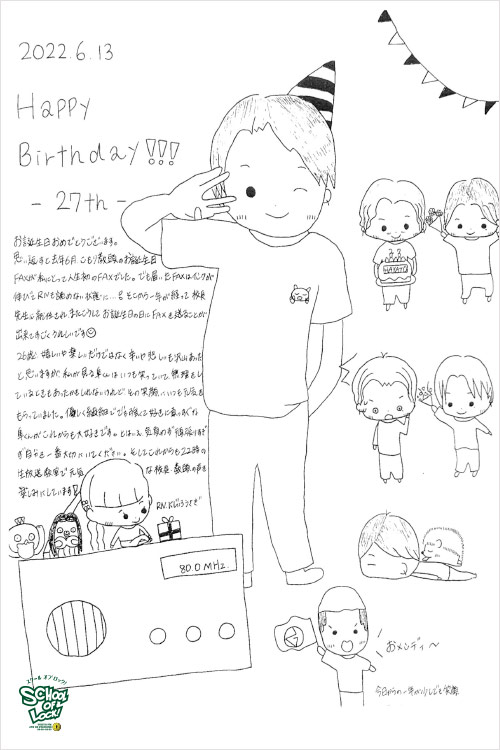 2022.6.13
Happy
Birthday!!!
- 27th -
お誕生日おめでとうございます。
思い返すと去年6月、こもり教頭のお誕生日
FAXが私にとって人生初のFAXでした。でも届いたFAXはインクが
伸びてRNも読めない状態に…
そこから一年が経って校長
先生に就任され、またこうしてお誕生日の日にFAXを送ることが
出来てすごくうれしいです
26歳は嬉しいや楽しいだけではなく辛いや悲しいも沢山あった
と思いますが、私が見る
はいつも笑っていて無理をし
ているときもあったかもしれないけれど、その笑顔にいつも元気を
もらっていました。優しく繊細で、でも強くて
くんがこれからも大好きです。とはいえ、
ご自分を一番大切にしてください。そしてこれからも22時の
生放送教室で元気
な校長・教頭の声を
楽しみにしています!
RN.
HAYATO
80.0 MHz
おメンディ〜
今日からの一年が少しでも笑顔
スクール オブ ロック!
SCHOOL
OF
LOCK!